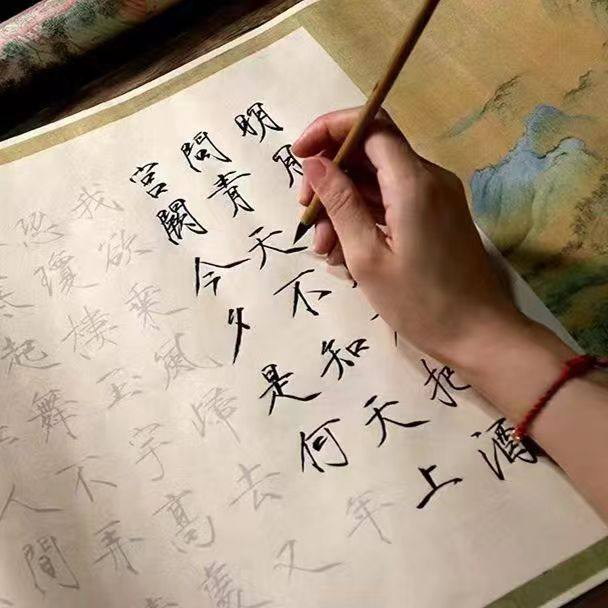 明月把酒
問青天不知天上
宮闕今夕是何年
我欲乘風歸去又
恐瓊樓玉宇高處
起舞不弄
人間